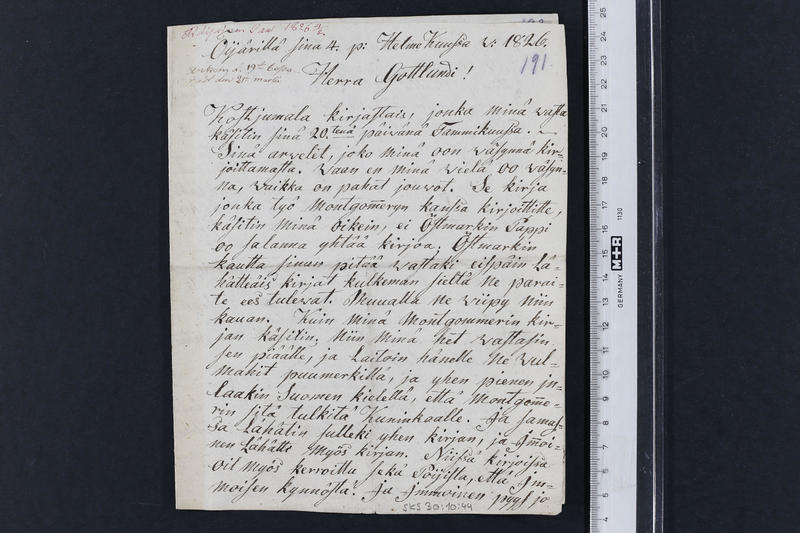 Öijärillä sinä 4. p: Helme Kuussa v: 1826.
191.
Herra Gottlundi!
Kostjumala kirjastais, jonka minä vasta
käsitin sinä 20.tenä päivänä Tammikuussa.
Sinä arvelet, joko minä oon väsynnä kir=
joittamasta. Waan en minä vielä oo väsyn=
nä, vaikka on pahat jouvot. Se kirja
jonka työ Montgomeryn kanssa kirjoititte,
käsitin minä oikein, ei Östmarkin Pappi
oo salanna yhtää kirjoa. Östmarkin
kautta sinun pitää vastaki eispäin Lä=
hätteäis kirjat kulkeman sieltä ne parai=
te ees tulevat. Muualla ne viipy niin
kauan. Kuin minä Montgommerin kir=
jan käsitin. Niin minä het vastasin
sen piäälle, ja Laitoin hänelle ne Wul=
mahit puumerkillä, ja yhen pienen in=
laakin Suomen kielellä, että Montgome=
rin sitä tulkita Kuninkaalle. Ja samas=
sa Lähätin sulleki yhen kirjan, ja Immoi=
nen Lähätti myös kirjan. Niissä kirjoissa
oil myös kerroittu sekä Pöijistä, että Im=
moisen kynnöstä. Ja Immoinen pyys jo
SKS 30:10:44
GERMANY M+R 1130
4 5 6 7 8 9 10 11 12 13 14 15 16 17 18 19 20 21 22 23 24 25